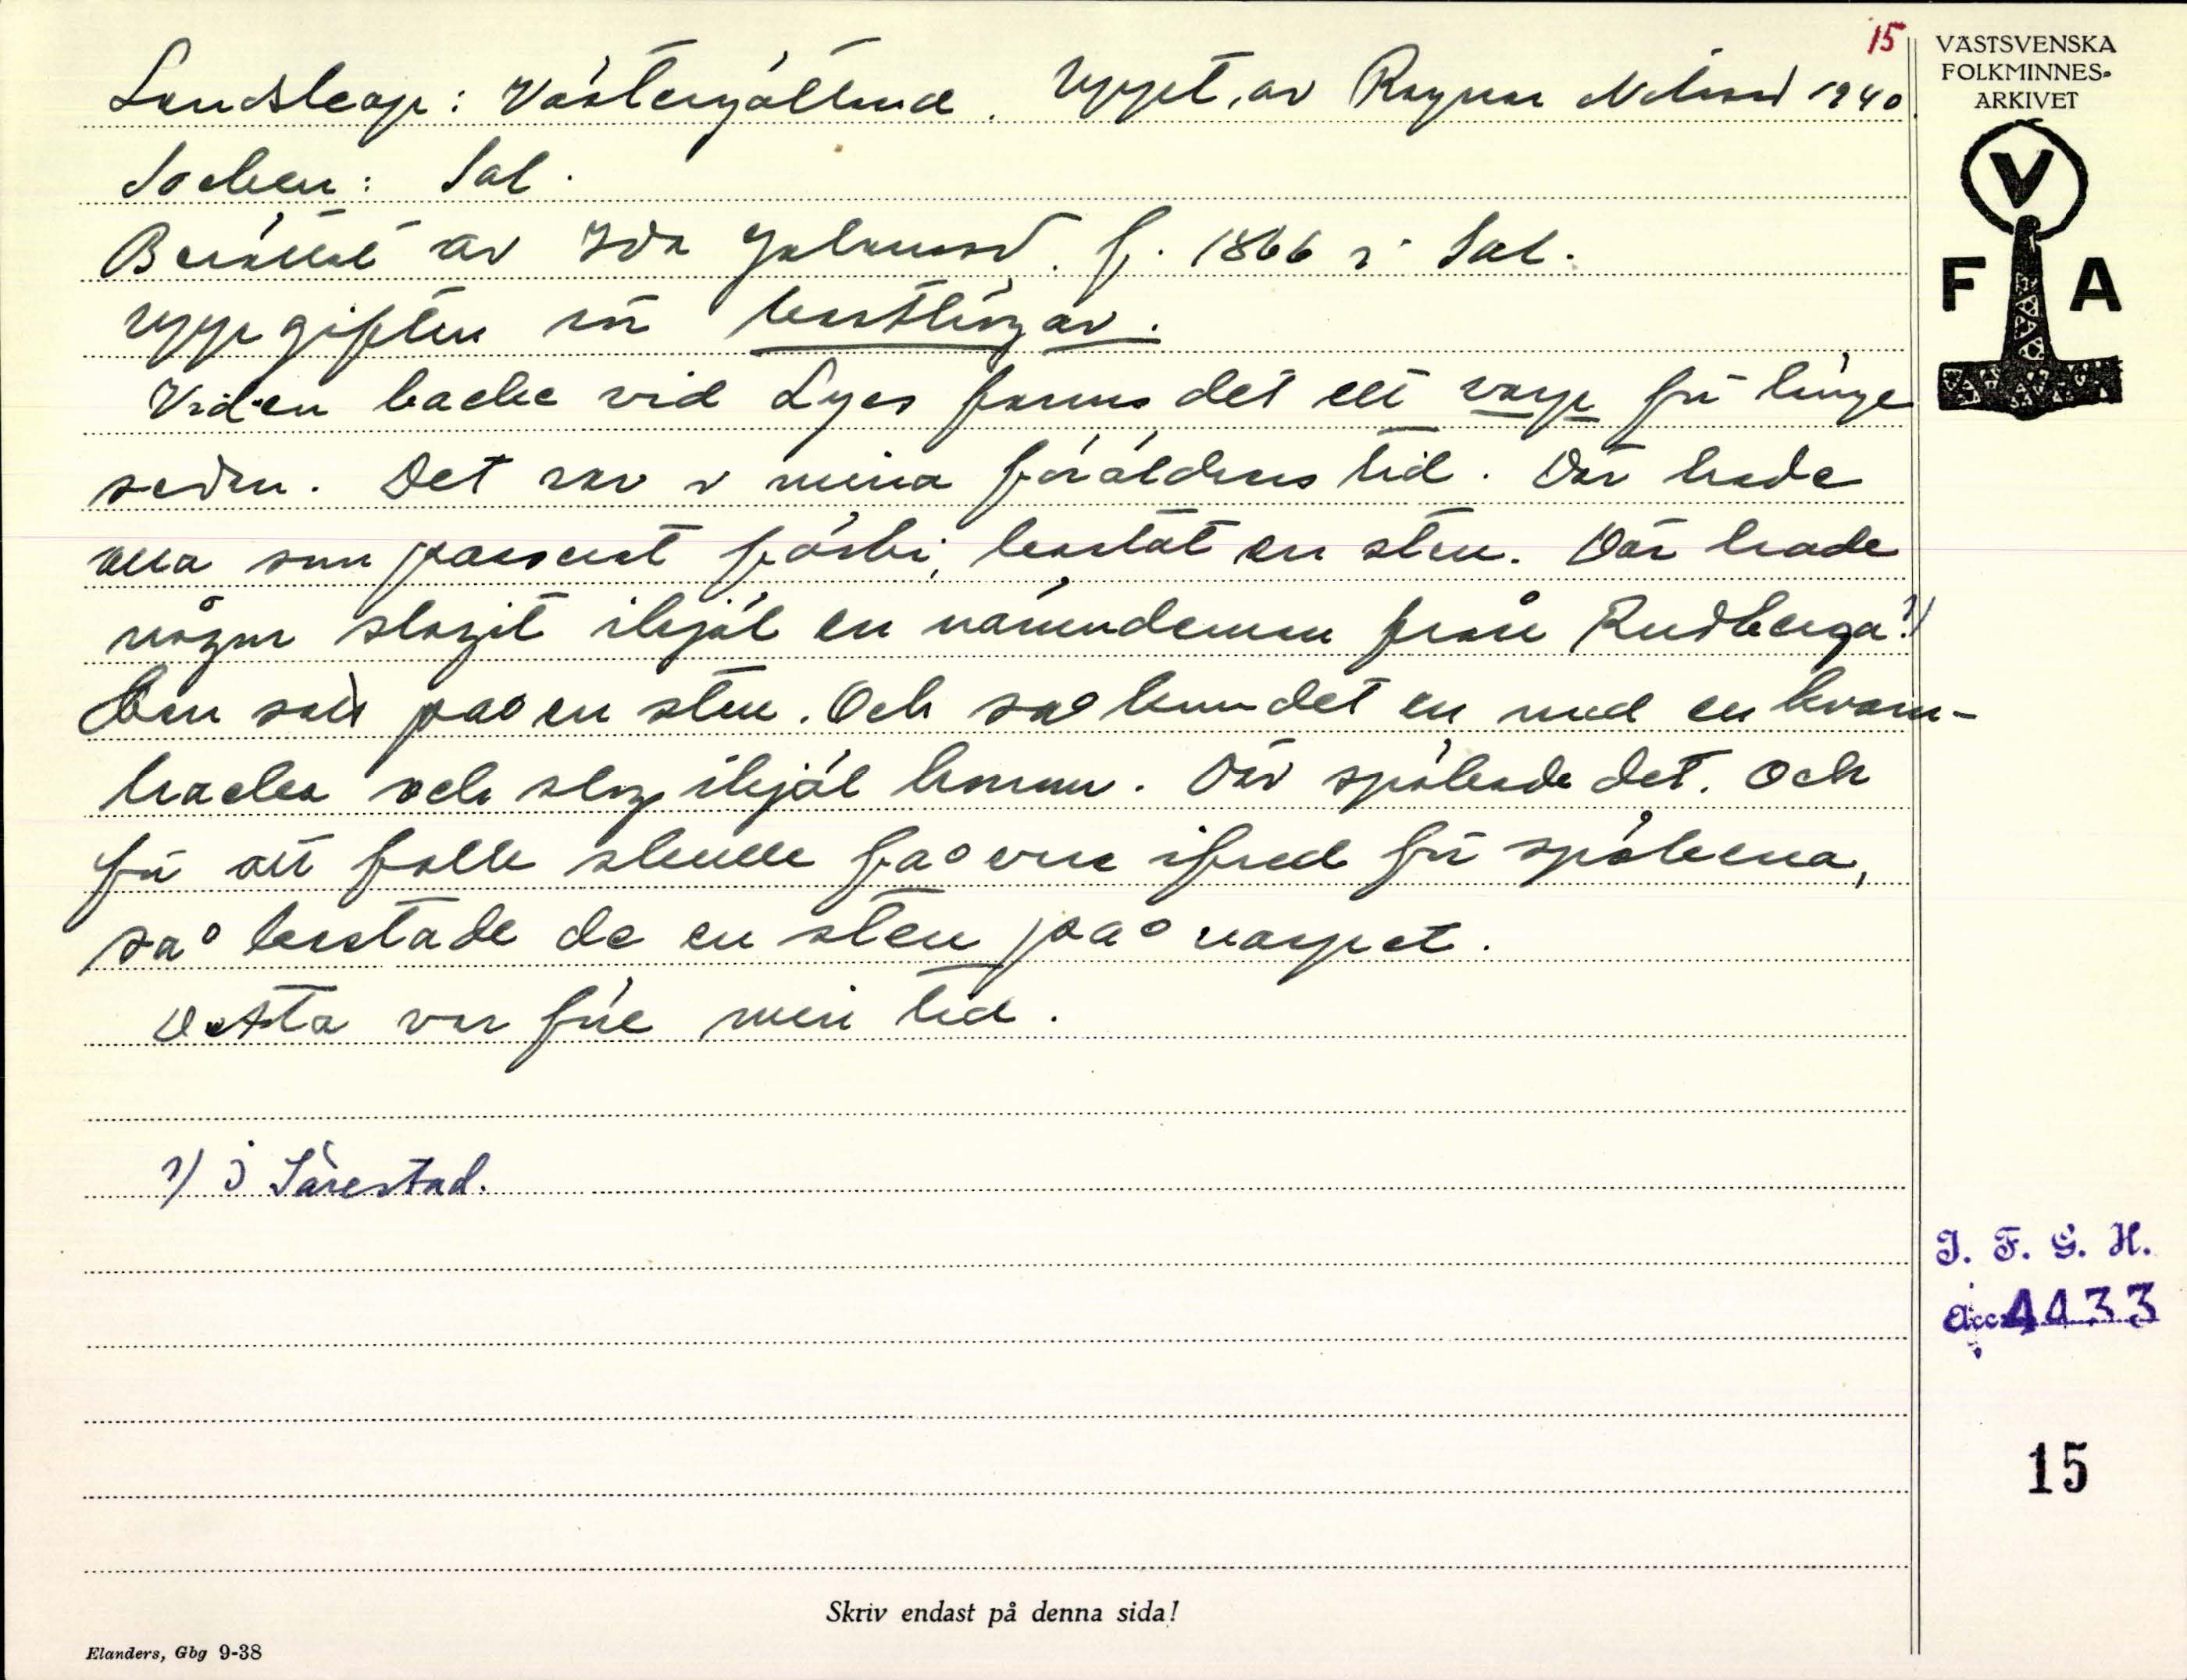 15
Landskap: Västergötland. Uppt. av Ragnar Nilsson 1940
Socken: Sal.
Berättat av Ida Johansson. f. 1866 i Sal.
Uppgifter om kasthögar.
Vid en backe vid Lyes fanns det ett varp för länge
sedan. Det var i mina föräldrars tid. Där hade
alla som passerat förbi, kastat en sten. Där hade
någon slagit ihjäl en nämndeman från Rudberga. 1)
Han satt på en sten. Och så kom det en med en kvarn-
hacka och slog ihjäl honom. Där spökade det. Och
för att folk skulle få vara ifred för spökena,
så kastade de en sten på varpet.
Detta var före min tid.
1) i Särestad.
Skriv endast på denna sida!
Elanders, Gbg 9-38
VÄSTSVENSKA
FOLKMINNES-
ARKIVET
V
F A
I. F. G. H.
Acc 4433
15